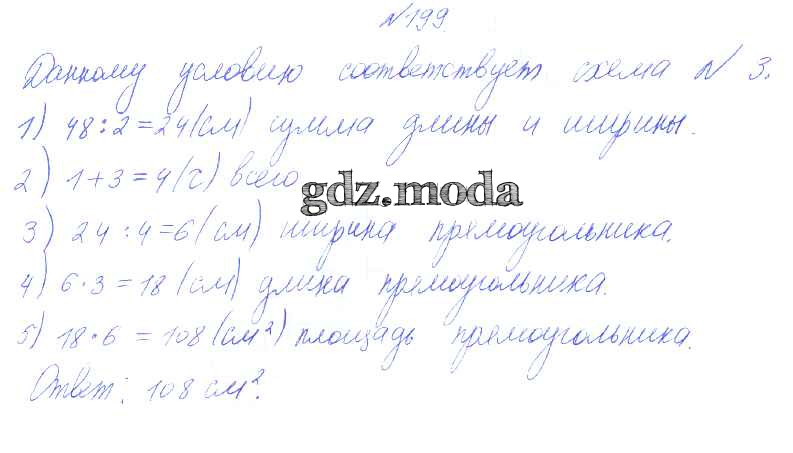 №199.
Данному условию соответствует схема № 3.
1) 48:2=24(см) сумма длины и ширины.
2) 1+3=4(ч) всего
gdz.moda
3) 24:4=6(см) ширина прямоугольника.
4) 6·3=18(см) длина прямоугольника.
5) 18·6=108(см²) площадь прямоугольника.
Ответ: 108 см².